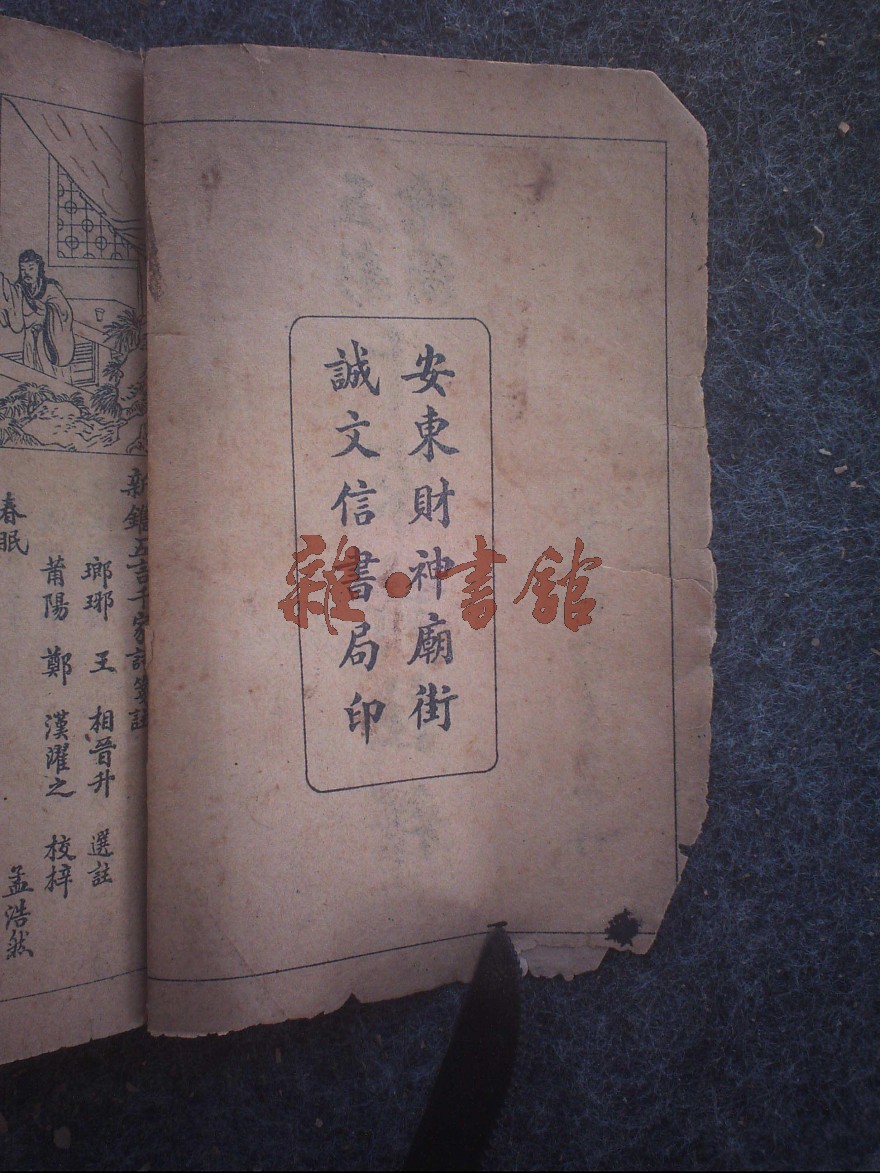 安東財神廟街
誠文信書局印
雜·書館
新鐫五言千家詩箋註
瑯琊 王 相晉升 選註
莆陽 鄭 漢濯之 校梓
春眠
孟浩然